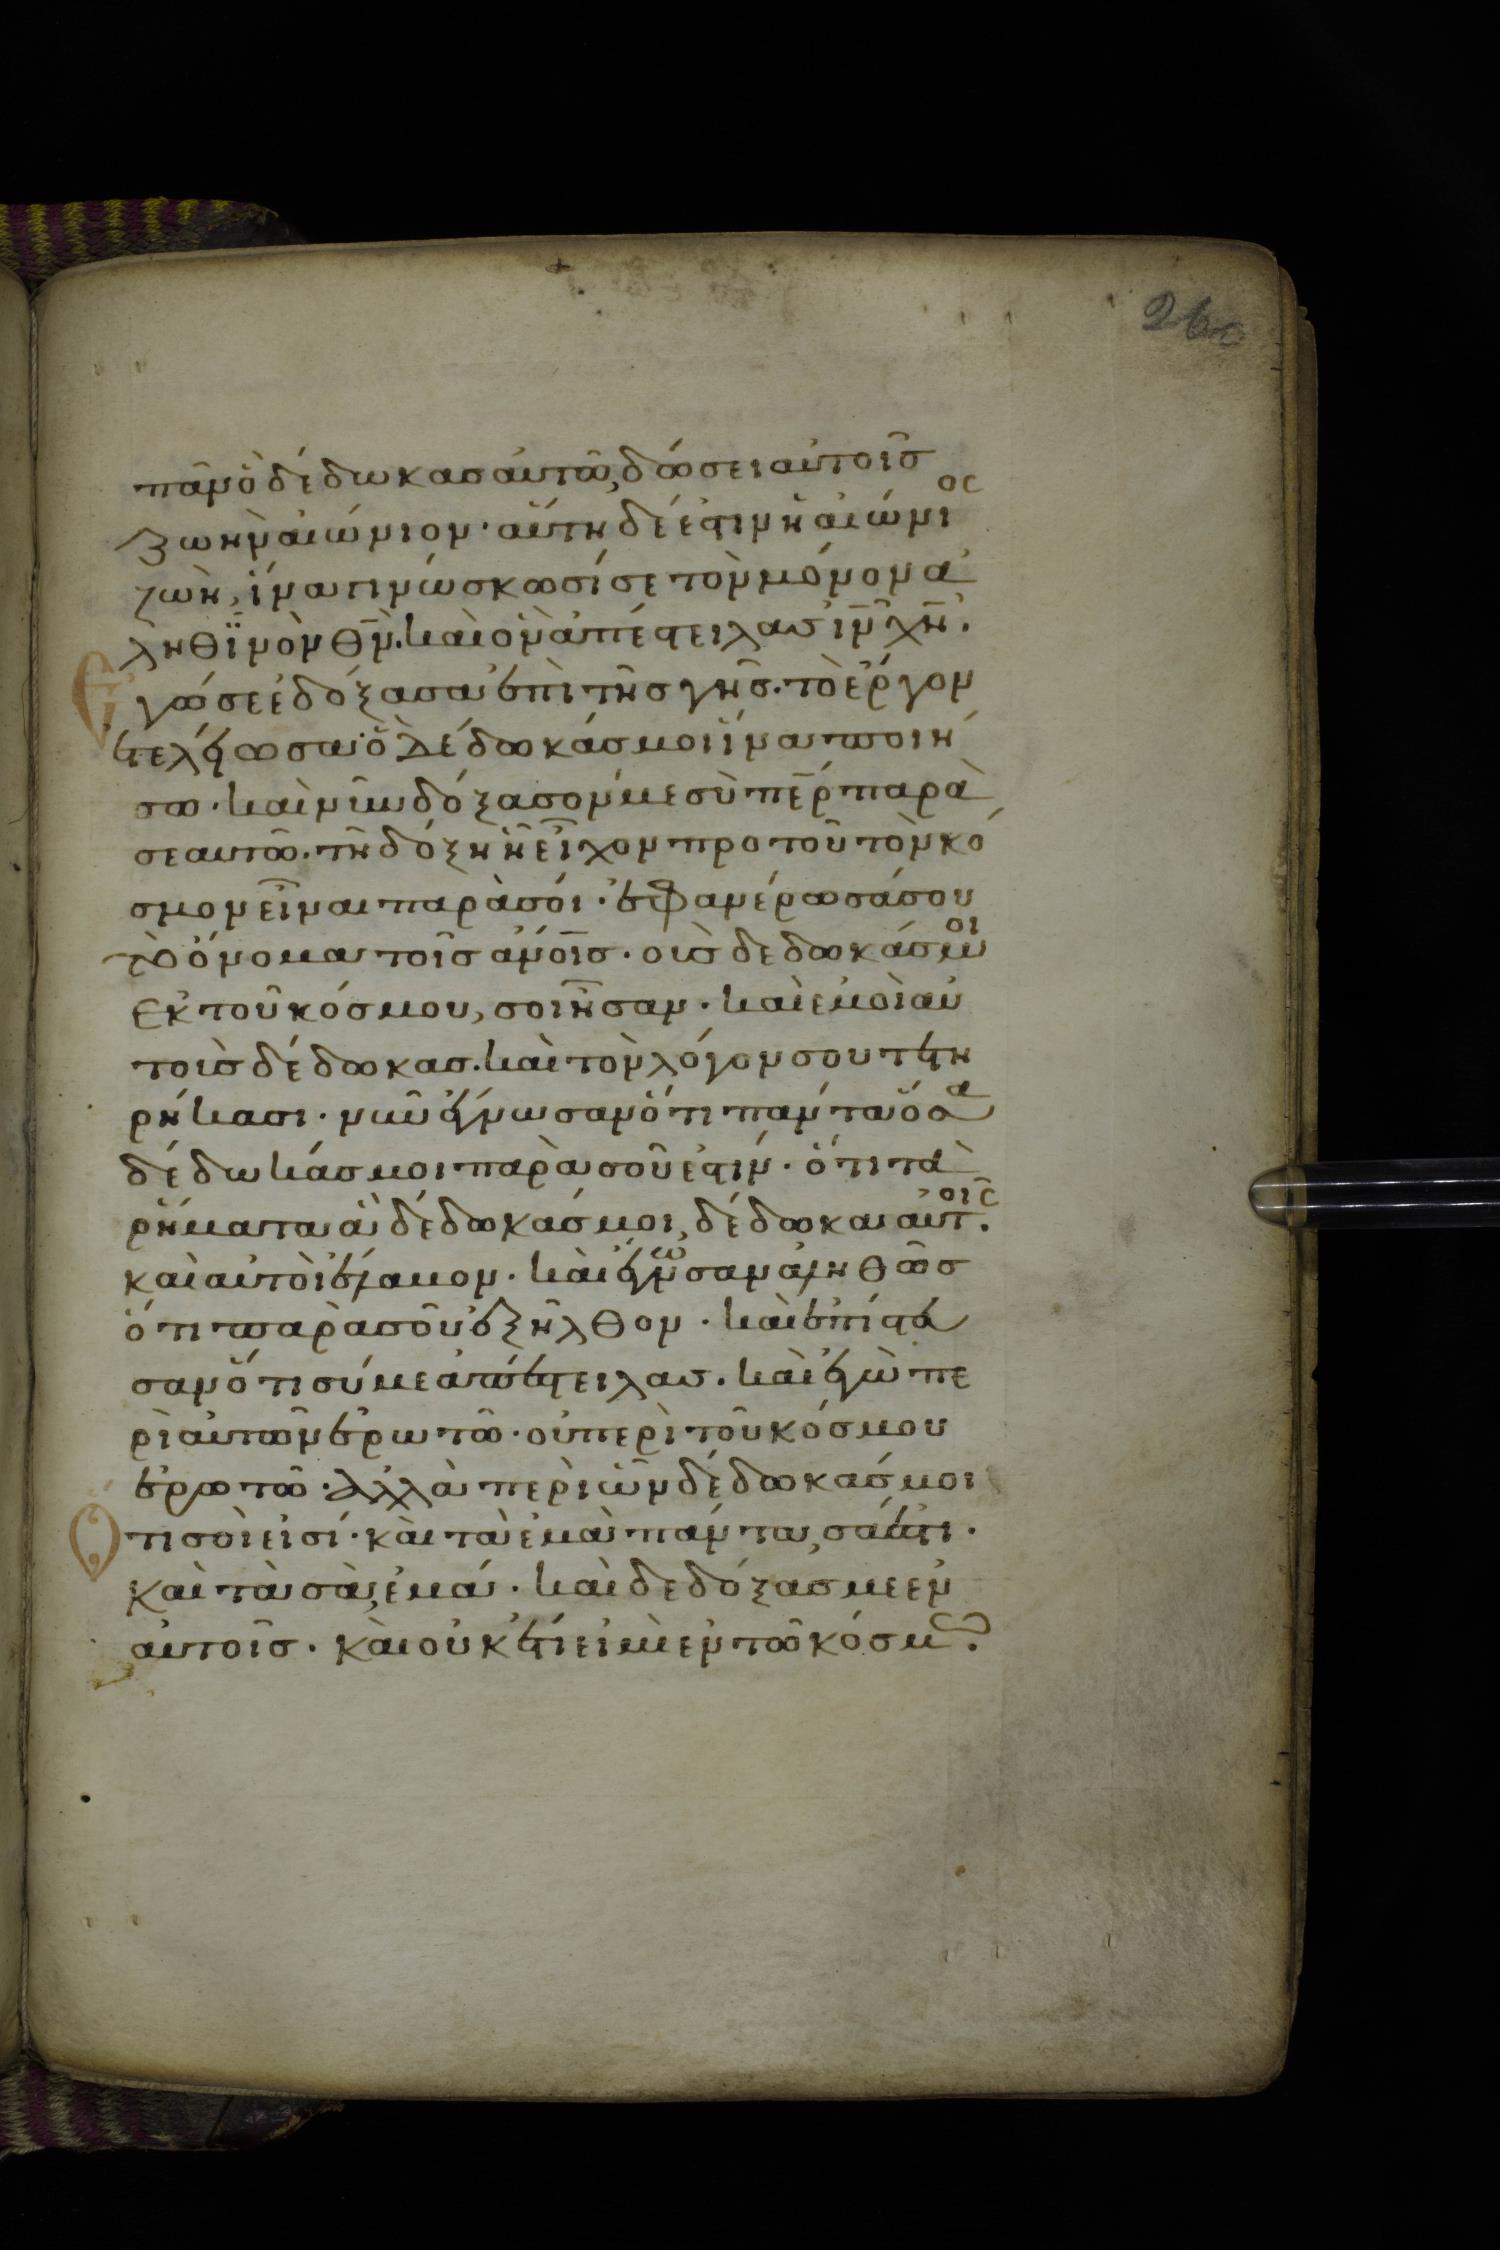 260
πᾶν ὃ δέδωκας αὐτῶ, δώσει αὐτοῖς
ζωὴν αἰώνιον· αὕτη δέ ἐστιν ἡ αἰώνιος
ζωὴ, ἵνα γινώσκωσί σε τὸν μόνον ἀ
ληθϊνὸν θν̄. καὶ ὃν ἀπέστειλας ιν̄ χν̄.
Ἐγώ σε ἐδόξασα ἐπὶ τῆς γῆς. τὸ ἔργον
ἐτελείωσα· ὃ δέδωκάς μοι ἵνα ποιή
σω· καὶ νῦν δόξασόν με σὺ περ παρὰ
σεαυτῶ. τῆ δόξη ἧ εἶχον προ τοῦ τὸν κό
σμον εἶναι παρὰ σοί· ἐφανέρωσά σου
τὸ ὄνομα τοῖς ἀνο̄ις· οὓς δέδωκάς μοι
ἐκ τοῦ κόσμου, σοὶ ἦσαν· καὶ ἐμοὶ αὐ
τοὺς δέδωκας. καὶ τὸν λόγον σου τετη
ρήκασι· νῦν ἔγνωσαν ὅτι πάντα ὅσα
δέδωκάς μοι παρὰ σοῦ ἐστίν· ὅτι τὰ
ῥήματα ἃ δέδωκάς μοι, δέδωκα αὐτοῖς.
καὶ αὐτοὶ ἔλαβον· καὶ ἔγνωσαν ἀληθῶς
ὅτι παρὰ σοῦ ἐξῆλθον· καὶ ἐπίστευ
σαν ὅτι σύ με ἀπέστειλας. καὶ ἐγὼ πε
ρὶ αὐτῶν ἐρωτῶ· οὐ περὶ τοῦ κόσμου
ἐρωτῶ· ἀλλὰ περὶ ὧν δέδωκάς μοι
Ὅτι σοὶ εἰσί· καὶ τὰ ἐμὰ πάντα, σά ἐστι·
καὶ τὰ σὰ, ἐμά· καὶ δεδόξασμε ἐν
αὐτοῖς· καὶ οὐκ ἔτι εἰμὶ ἐν τῶ κόσμω.